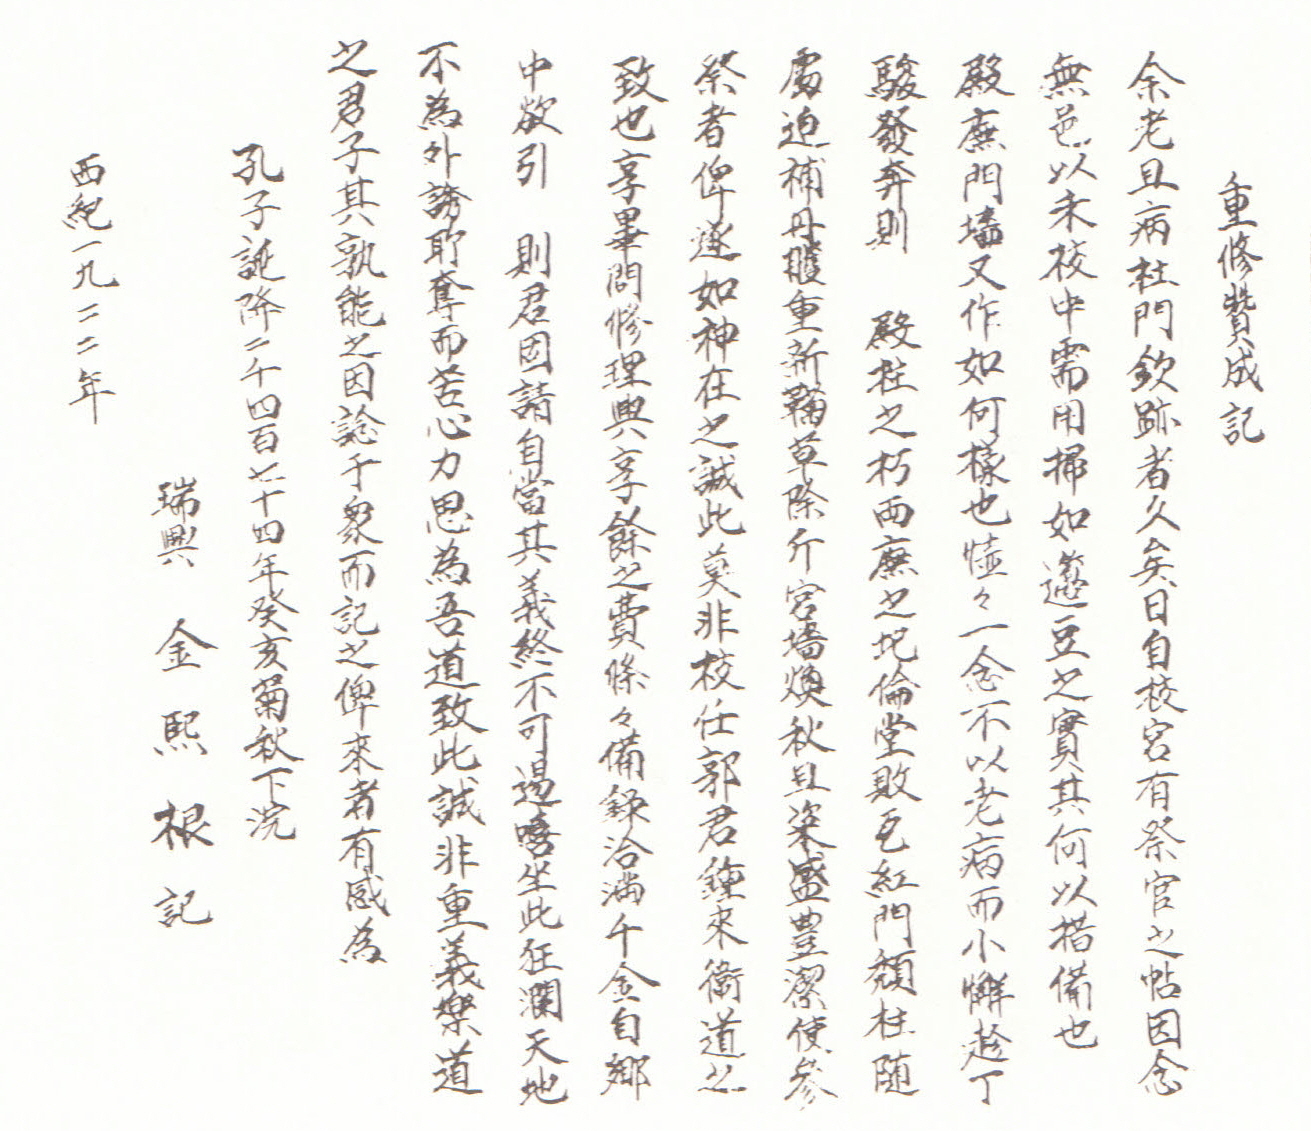 重修賛成記
余老且病杜門歛跡者久矣日自校宮有祭官之帖因念
無邑以未校中需用掃如籩豆之實其何以措備也
殿廡門墻又作如何樣也憧々一念不以老病而小懈趁丁
駿發奔則 殿柱之朽西廡之圯倫堂敗瓦紅門頹柱随
處迫補丹雘重新鞠草除斤宮墻煥秋且粢盛豊潔使參
祭者俾遂如神在之誠此莫非校任郭君鍾來衛道之
致也享畢問修理與享餘之費條々備録洽滿千金自鄉
中欲引 則君固請自當其義終不可遏噫坐此狂瀾天地
不為外誘所奪而苦心力思為吾道致此誠非重義樂道
之君子其孰能之因諗于衆而記之俾來者有感為
孔子誕降二千四百七十四年癸亥菊秋下浣
瑞興 金熙根記
西紀一九二二年